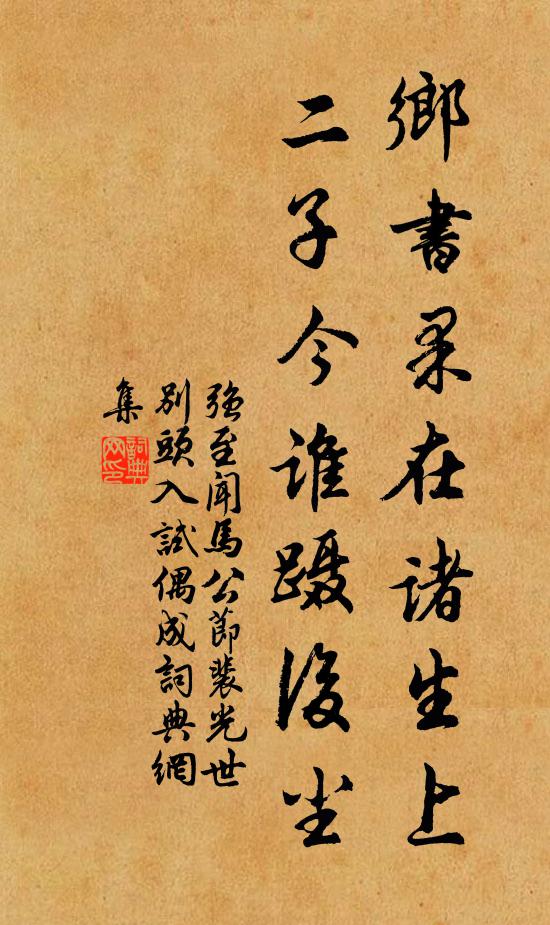 鄉書果在諸生上
二子今誰躡後尘
強至聞馬公節裴光世
別頭入試偶成詞典網
集
詞典網印